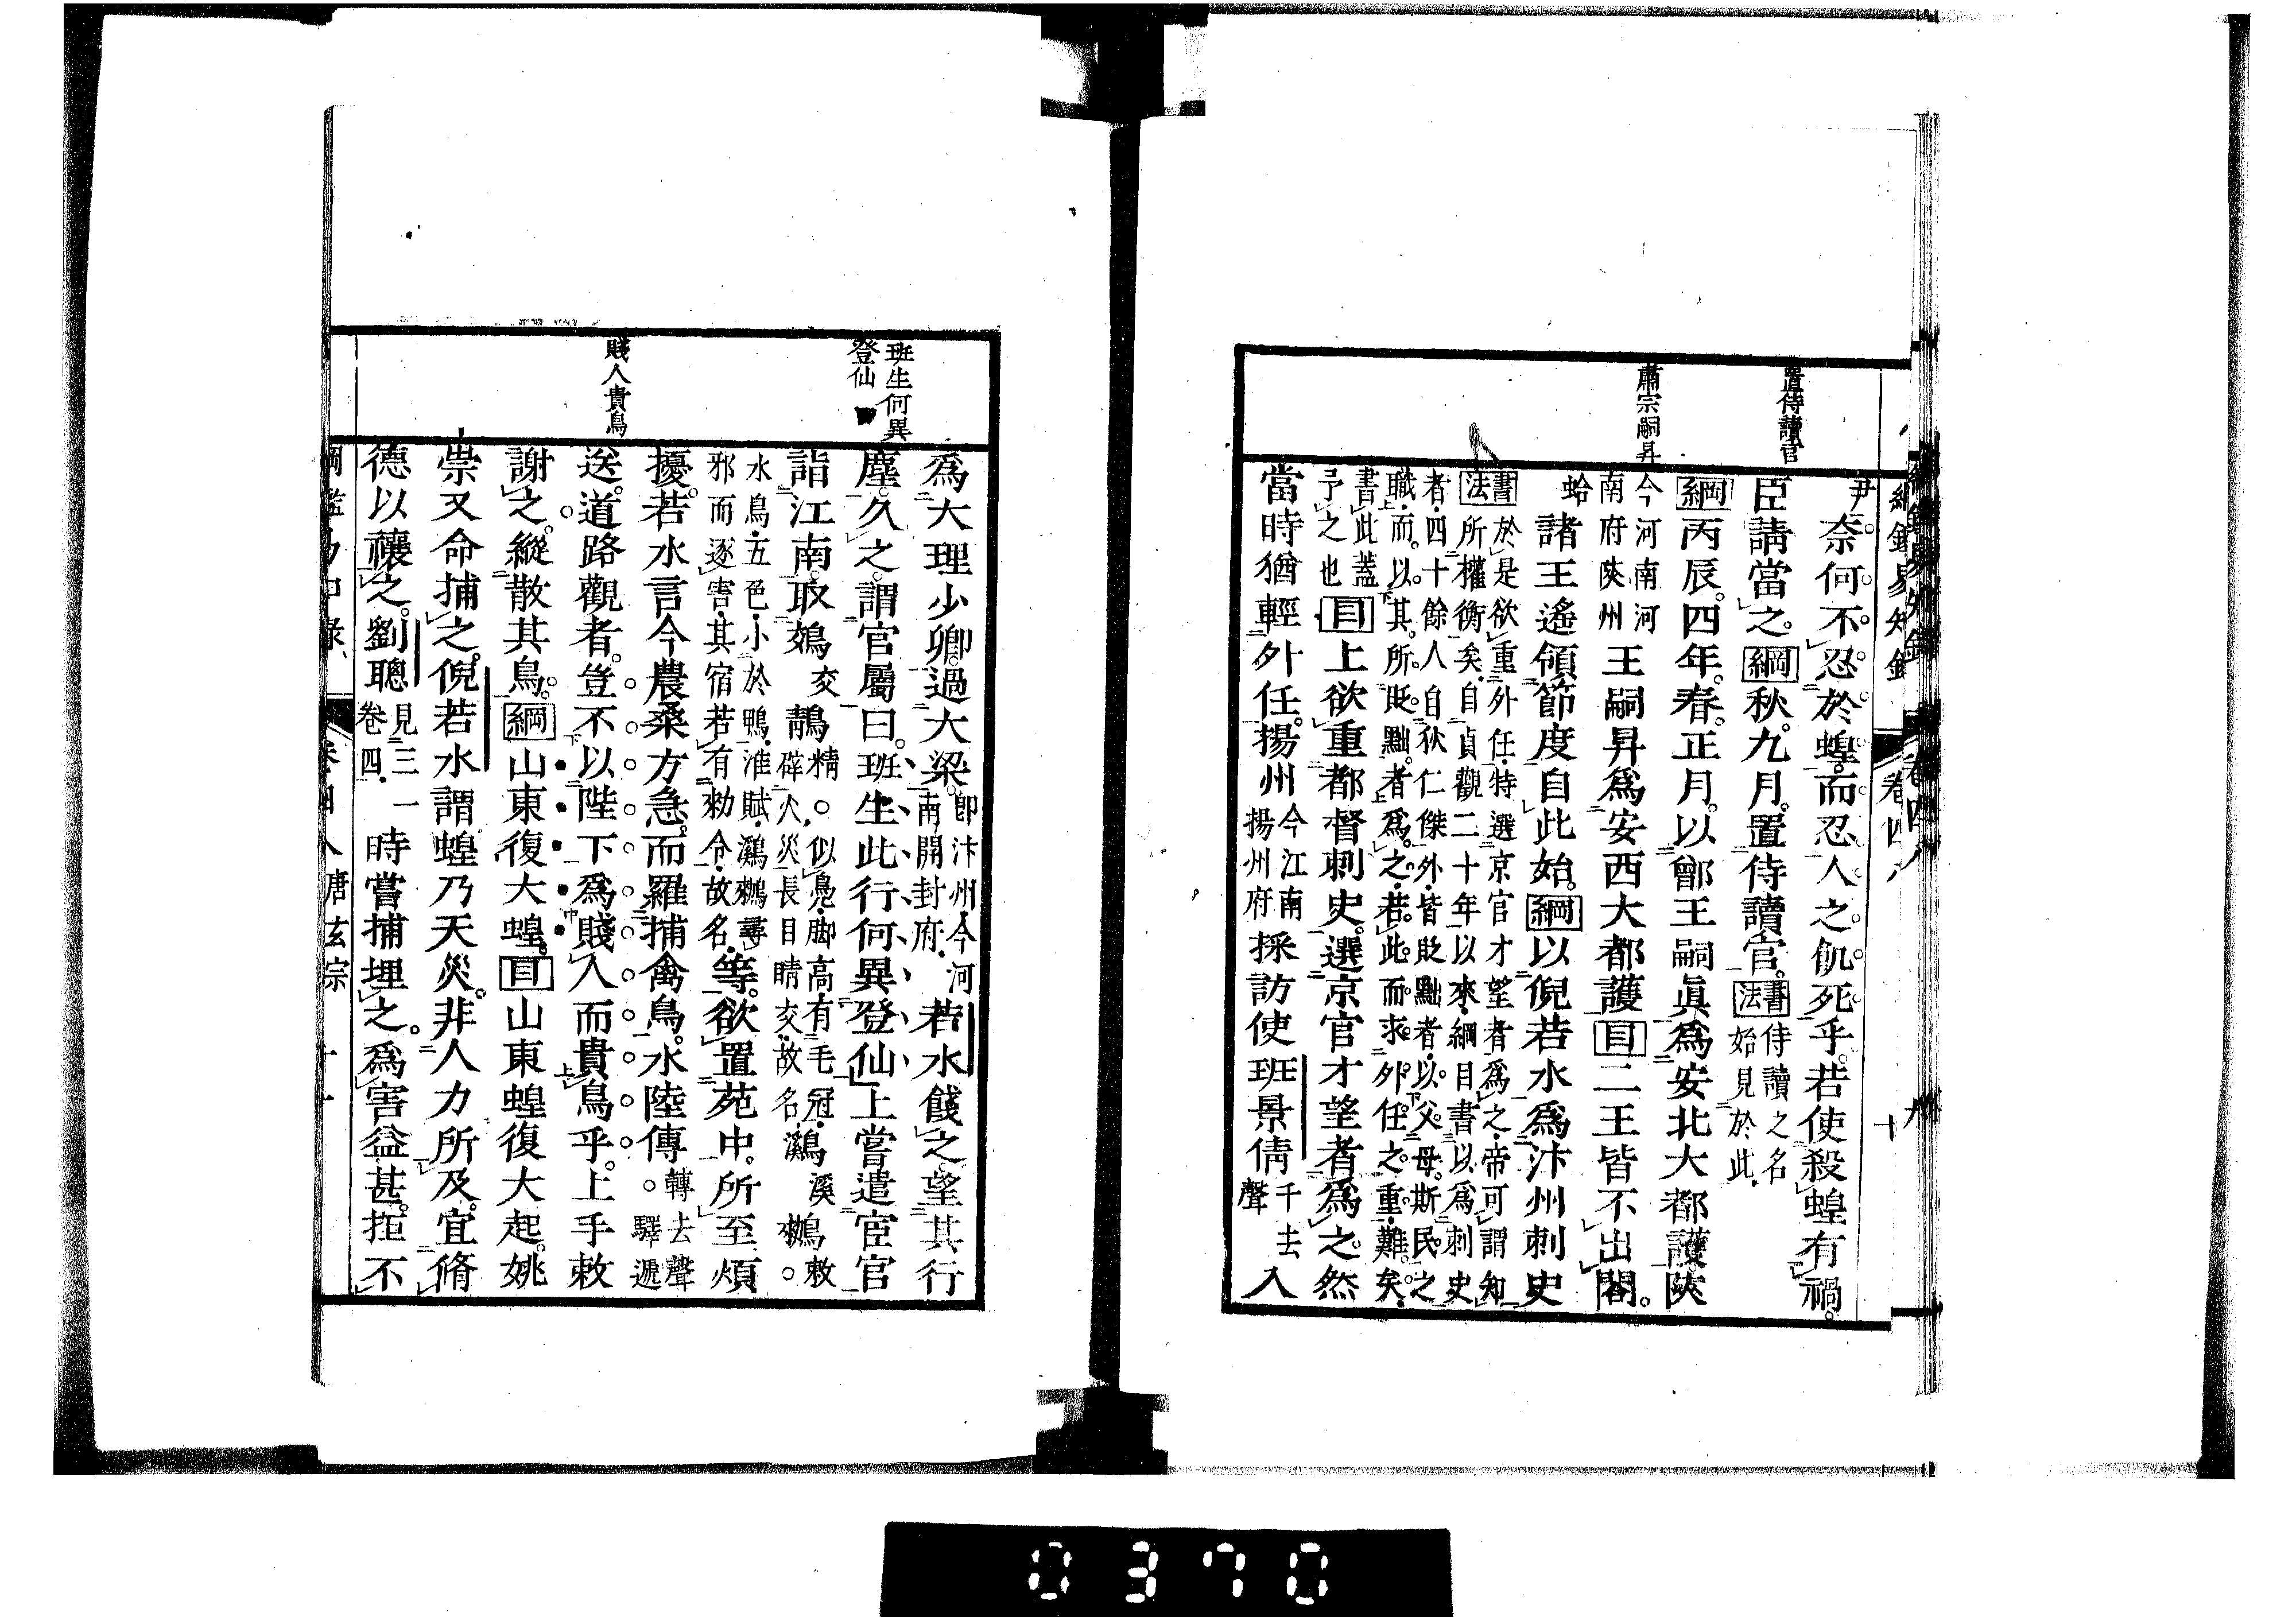 置侍讀官
肅宗嗣昇
尹。奈何不忍於蝗。而忍人之飢死乎。若使殺蝗有禍。
臣請當之。綱秋。九月。置侍讀官。書法侍讀之名始見於此。
綱丙辰。四年。春。正月。以鄫王嗣眞爲安北大都護。陝
今河南河南府陝州王嗣昇爲安西大都護目二王皆不出閤。
蛤諸王遙領節度自此始。綱以倪若水爲汴州刺史
書法於是欲重外任。特選京官才望者爲之。帝可謂知
所權衡矣。自貞觀二十年以來。綱目書以爲刺史
者。四十餘人自狄仁傑外。皆貶黜者。以父母斯民之
職。而以其所貶黜者爲之。若此而求外任之重。難矣。
書此蓋予之也目上欲重都督刺史。選京官才望者爲之。然
當時猶輕外任。揚州今江南揚州府採訪使班景倩千去聲入
班生何異登仙
賤人貴鳥
爲大理少卿。過大梁。卽汴州今河南開封府。若水餞之。望其行
塵。久之。謂官屬曰。班生此行。何異登仙。上嘗遣宦官
詣江南。取鵁交鶄精。○似鳧。脚高有毛冠。辟火災。長目睛交。故名。㶉溪鶒敕。○
水鳥。五色。小於鴨。淮賦。㶉鶒尋邪而逐害。其宿若有勑令。故名。等。欲置苑中。所至煩
擾。若水言今農桑方急。而羅捕禽鳥。水陸傳轉去聲。○驛遞
送。道路觀者。豈不以陛下爲賤人而貴鳥乎。上手敕
謝之。縱散其鳥。綱山東復大蝗。目山東蝗復大起。姚
崇又命捕之。倪若水謂蝗乃天災。非人力所及。宜脩
德以禳之。劉聰見三一卷四。時嘗捕埋之。爲害益甚。拒不
唐玄宗
0370